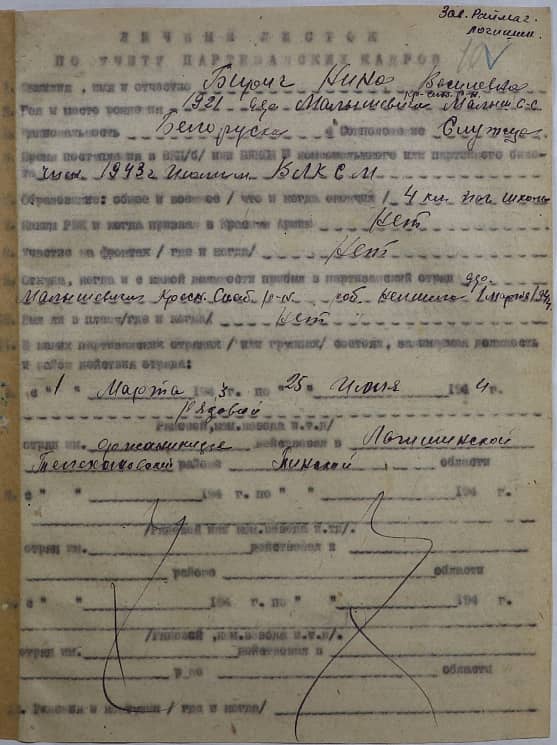 Зав. Раймаг.
Логишин.
ЛИЧНЫЙ ЛИСТОК
ПО УЧЕТУ ПАРТИЗАНСКИХ КАДРОВ
Фамилия, имя и отчество Бирич Нина Васильевна
2. Год и место рождения 1921 дер. Малышевичи
Национальность Белоруска 4 Соцположение Служащ
5. Время поступления в ВКП/б/ или ВЛКСМ
член 1943 г Июль ВЛКСМ
Образование: общее и военное / что и когда окончил / 4 кл. школы
Каким РВК и когда призван в Красную Армию Нет
Участие на фронтах / где и когда/ Нет
Откуда, когда и с какой местности прибыл в партизанский отряд дер.
Малышевичи р-н
Был ли в плену/где и когда/ Нет
В каких партизанских отрядах / или группах/ состоял, занимаемая должность
и район действия отряда:
с "1" Марта 1943 г. по "25" Июня 1944 г.
Рядовой
/Рядовой, ком. взвода и.т.п/
отряд им. Орджаникидзе действовал в Логишинской
Телеханский районе Пинской области
с " " 194 г. по " " 194 г.
/Рядовой или ком. взвода и.тп/.
отряд им. действовал в
районе области
с " " 194 г. по " " 194 г.
/Рядовой, ком. взвода и.т.п/.
отряд им. действовал в
р-не области
Ранения и / где и когда/